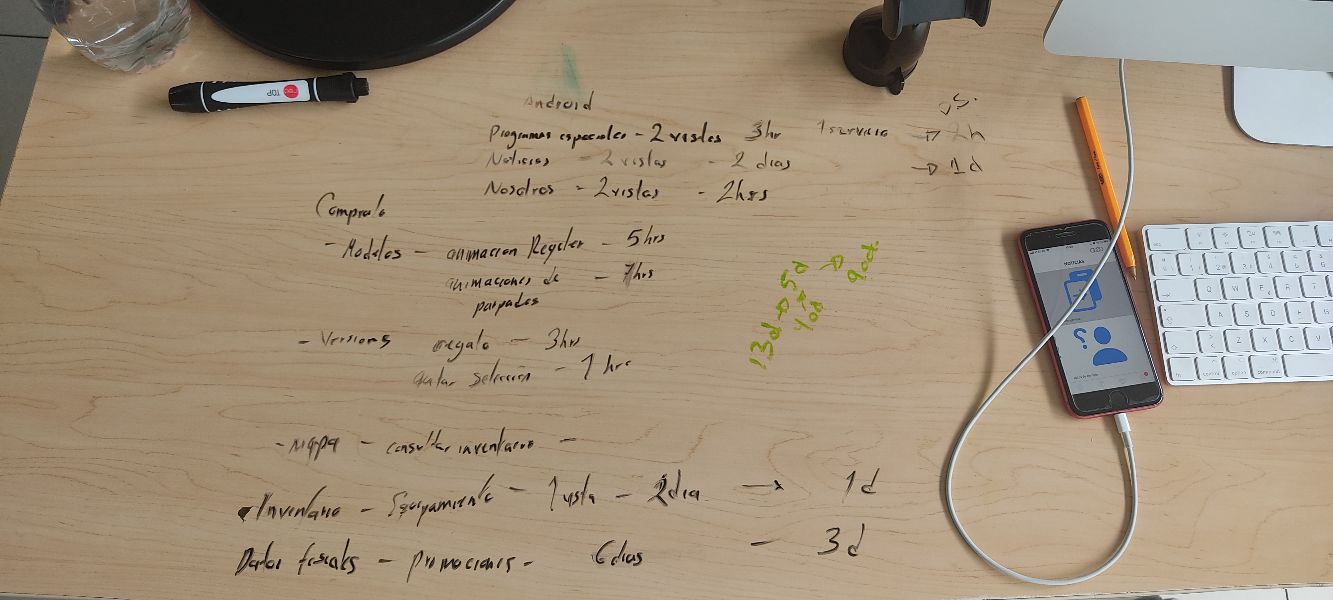 Android
Programas especiales - 2 vistas 3hr 1 servicio
Noticias - 2 vistas - 2 dias → 1d
Nosotros - 2 vistas - 2hrs
Compralo
- Modelos - animacion Recycler - 5hrs
animaciones de - 7hrs
parpados
- Versiones regalo - 3hrs
quitar selección - 1 hrs
- Mapa - consultar inventario -
Inventario - Equipamiento - 1 vista - 2dia → 1d
Datos fiscales - promociones - 6 dias - 3d
13d → 5d →
40d
TOP
NOTICIAS